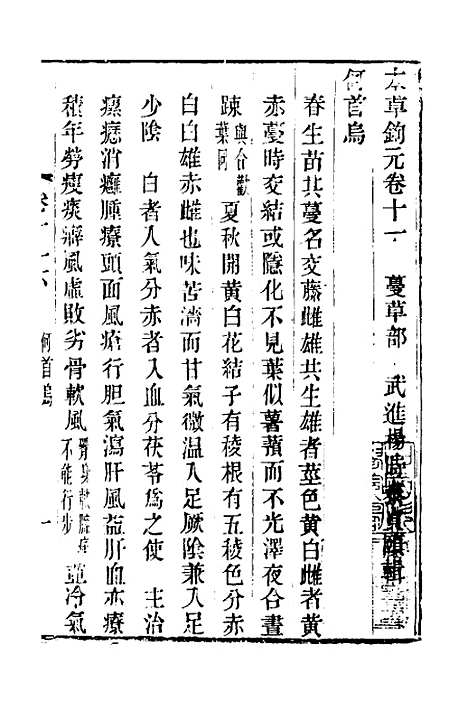 本草鉤元卷十一 蔓草部 武進楊時泰貞頤輯
何首烏
春生苗其蔓名交藤雌雄共生雄者莖色黃白雌者黃
赤蔓時交結或隱化不見葉似薯蕷而不光澤夜合晝
踈與合歡葉同夏秋開黃白花結子有稜根有五稜色分赤
白白雄赤雌也味苦濇而甘氣微温入足厥陰兼入足
少陰 白者入氣分赤者入血分茯苓為之使 主治
瘰癧消癰腫療頭面風瘡行胆氣瀉肝風益肝血亦療
積年勞瘦痰癖風虛敗劣骨軟風腰身軟膝疼不能行步冷氣
何首烏 一